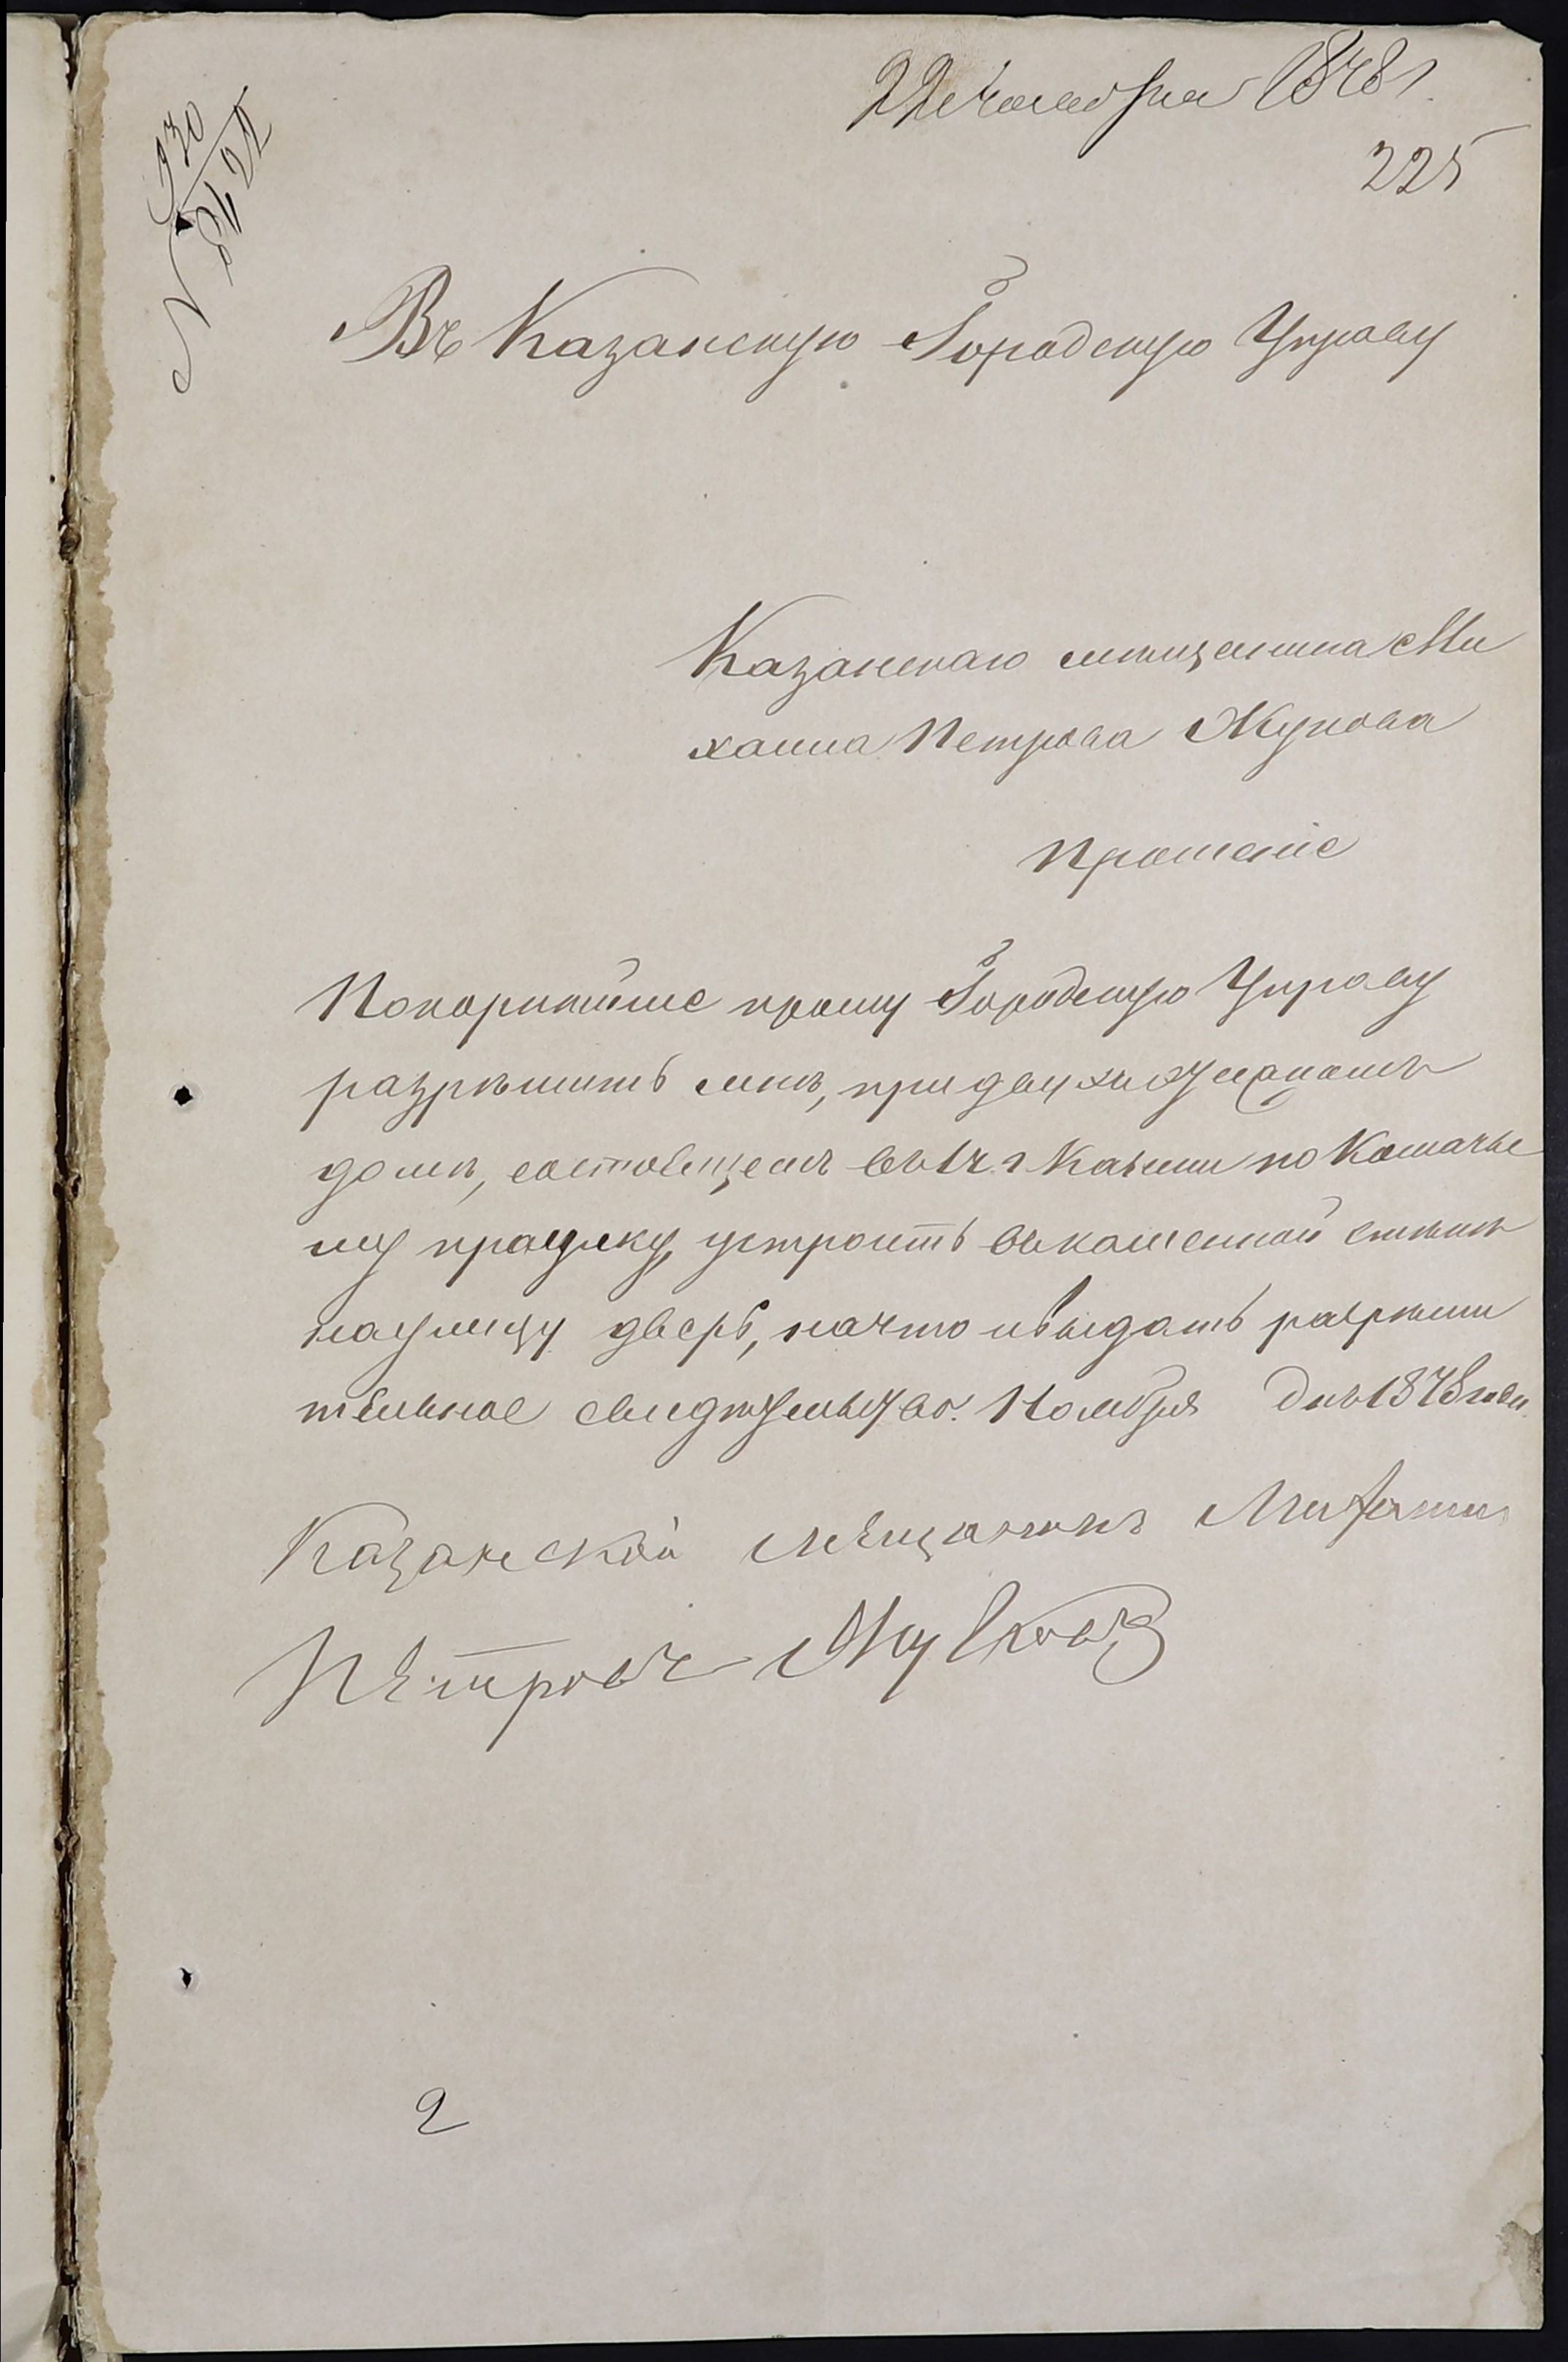 22 ноября 1878 г.
225
№ 930
Въ Казанскую Городскую Управу
Казанскаго мѣщанина Ми
хаила Петрова Жукова
Прошеніе
Покорнѣйше прошу Городскую Управу
разрѣшить мнѣ, при двухъ этажномъ
домѣ, состоящемъ въ 1 ч. г. Казани по
му проулку, устроить въ каменной стѣнѣ
на улицу дверь, на что и выдать разрѣши
тельное свидѣтельство. Ноября дня 1878 года.
Казанской мещанинъ Михаилъ
Петровъ Жуковъ
2